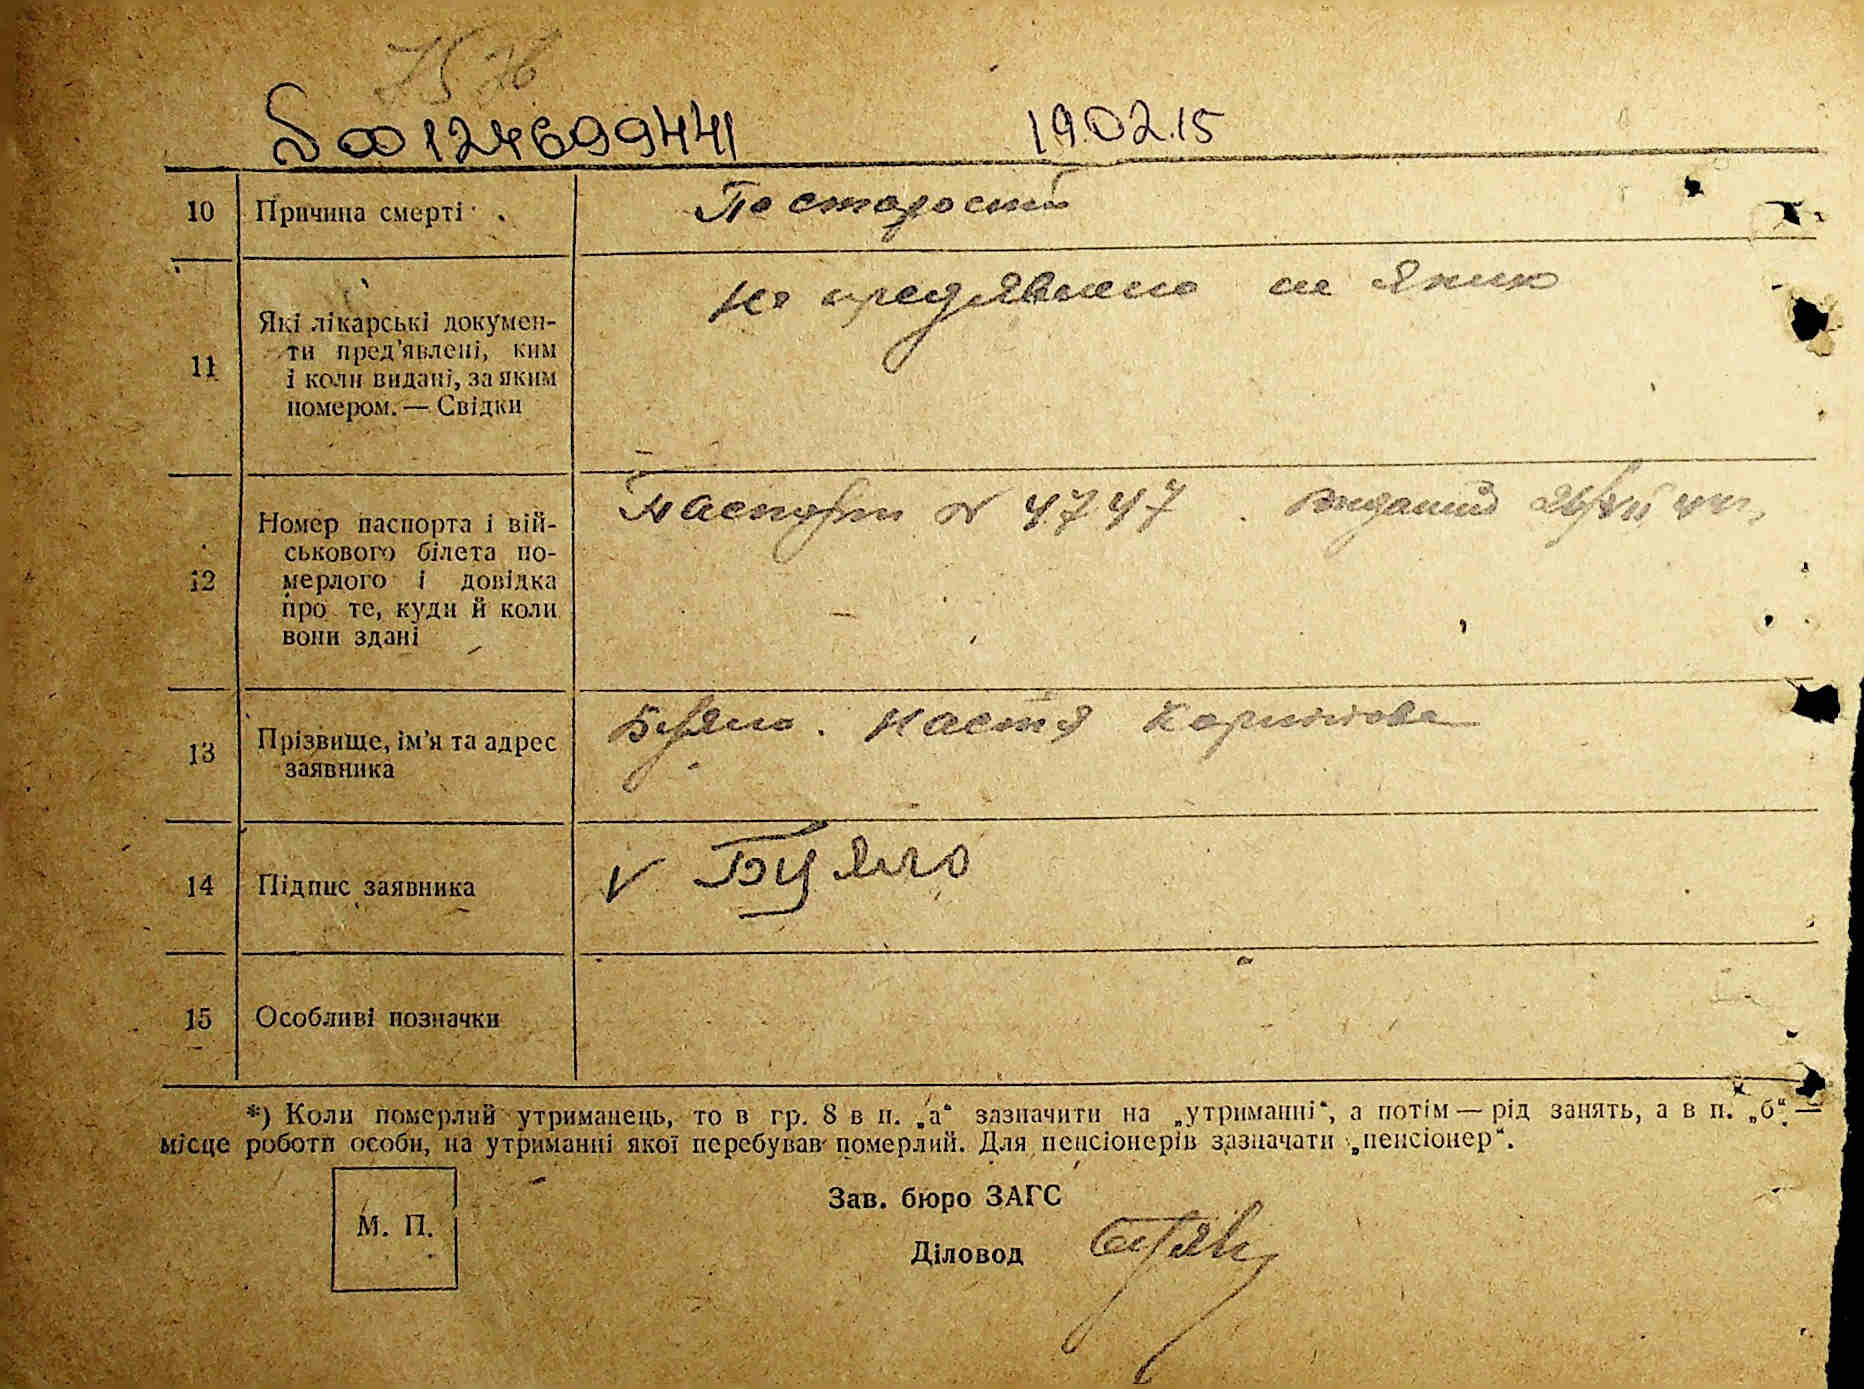 00124699441 19.02.15
10 Причина смерті По старости
11 Які лікарські докумен-
ти пред'явлені, ким
і коли видані, за яким
номером. — Свідки
не предявлено ні яких
12 Номер паспорта і вій-
ськового білета по-
мерлого і довідка
про те, куди й коли
вони здані
Паспорт № 4747 . виданий
13 Прізвище, ім'я та адрес
заявника
Настя
14 Підпис заявника
V
15 Особливі позначки
*) Коли померлий утриманець, то в гр. 8 в п. „а“ зазначити на „утриманні“, а потім — рід занять, а в п. „б“ —
місце роботи особи, на утриманні якої перебував померлий. Для пенсіонерів зазначати „пенсіонер“.
М. П.
Зав. бюро ЗАГС
Діловод